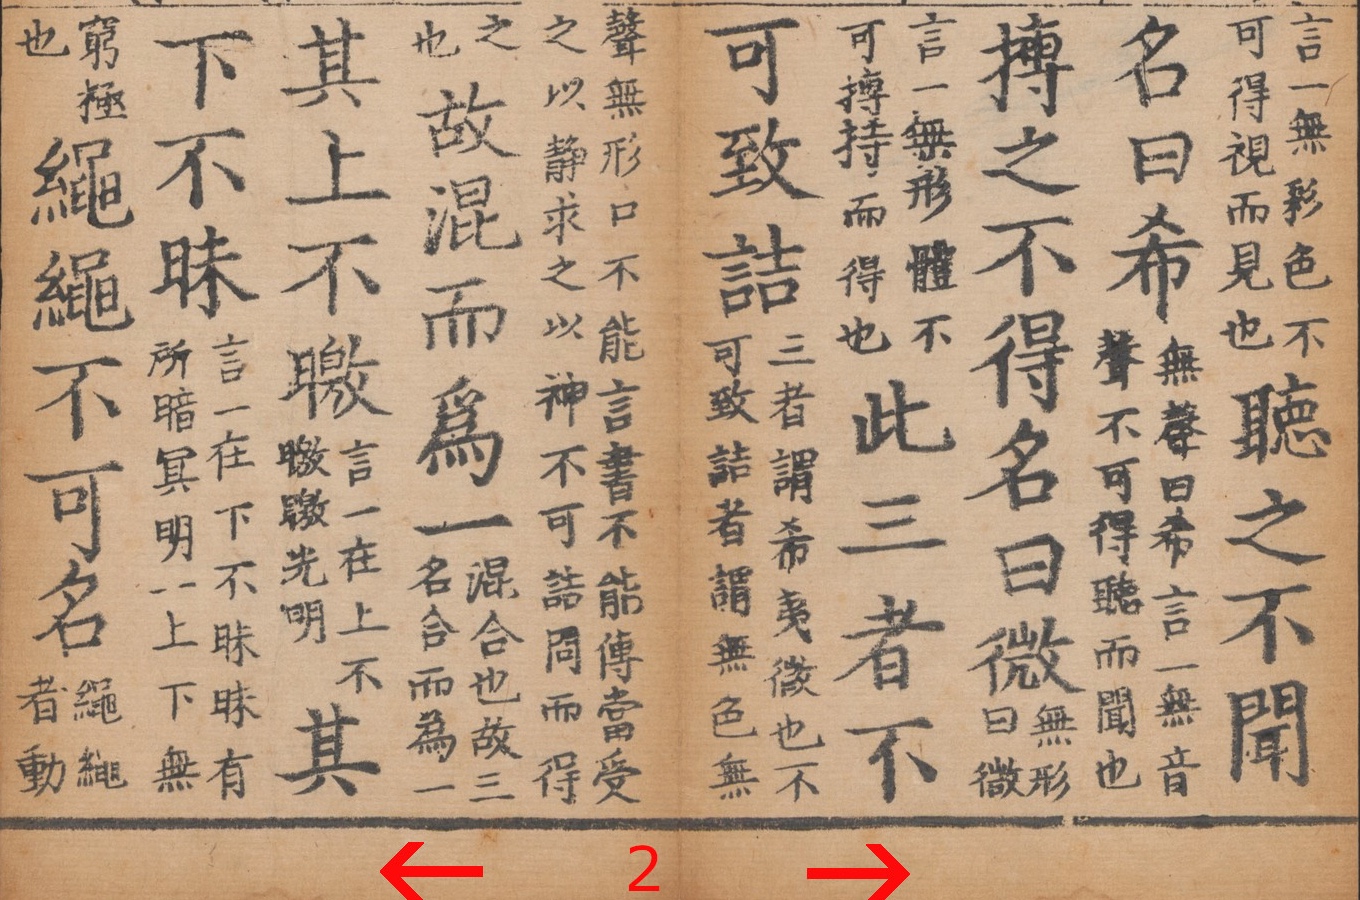 言一無彩色不
可得視而見也
聽之不聞
名曰希
無聲曰希言一無音
聲不可得聽而聞也
搏之不得名曰微
無形
曰微
言一無形體不
可搏持而得也
此三者不
可致詰
三者謂希夷微也不
可致詰者謂無色無
聲無形口不能言書不能傳當受
之以静求之以神不可詰問而得
之
也
故混而爲一
混合也故三
名合而為一
其上不皦
言一在上不
皦皦光明
其
下不昧
言一在下不昧昧有
所暗冥明一上下無
窮極
也
繩繩不可名
繩繩
者動
← 2 →